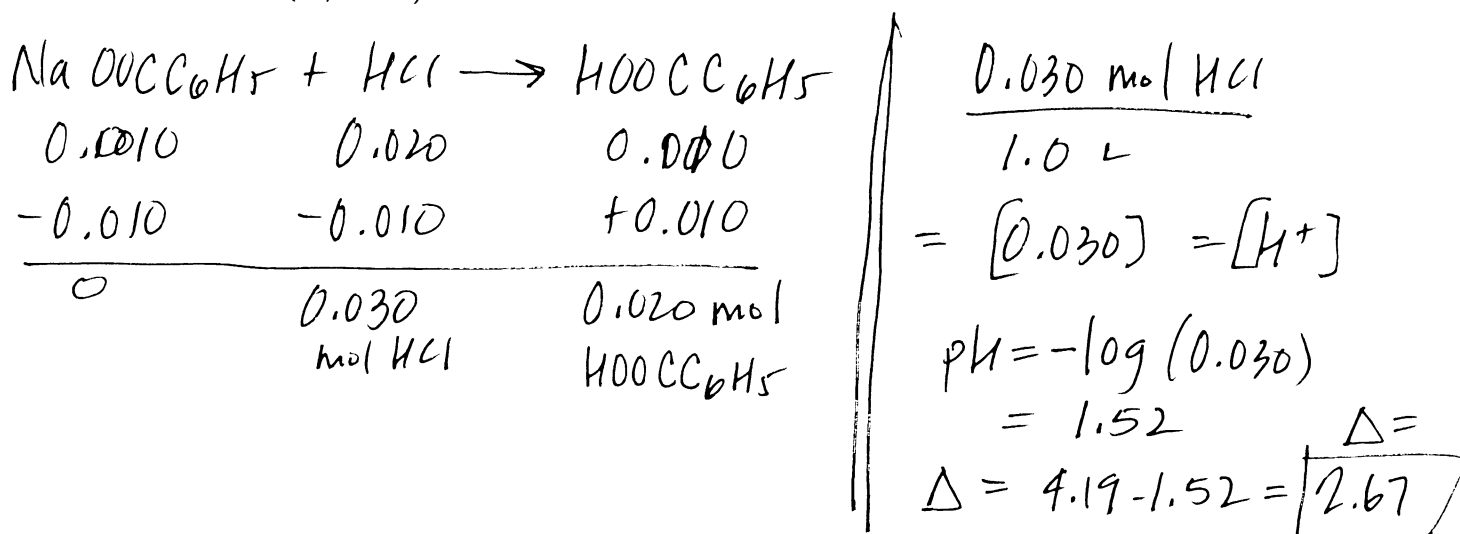 NaOOCC6H5 + HCl → HOOCC6H5
0.0010 0.020 0.000
-0.010 -0.010 +0.010
0 0.030 0.020 mol
mol HCl HOOCC6H5
0.030 mol HCl
1.0 L
= [0.030] = [H+]
pH = -log (0.030)
= 1.52 Δ =
Δ = 4.19-1.52 = 2.67